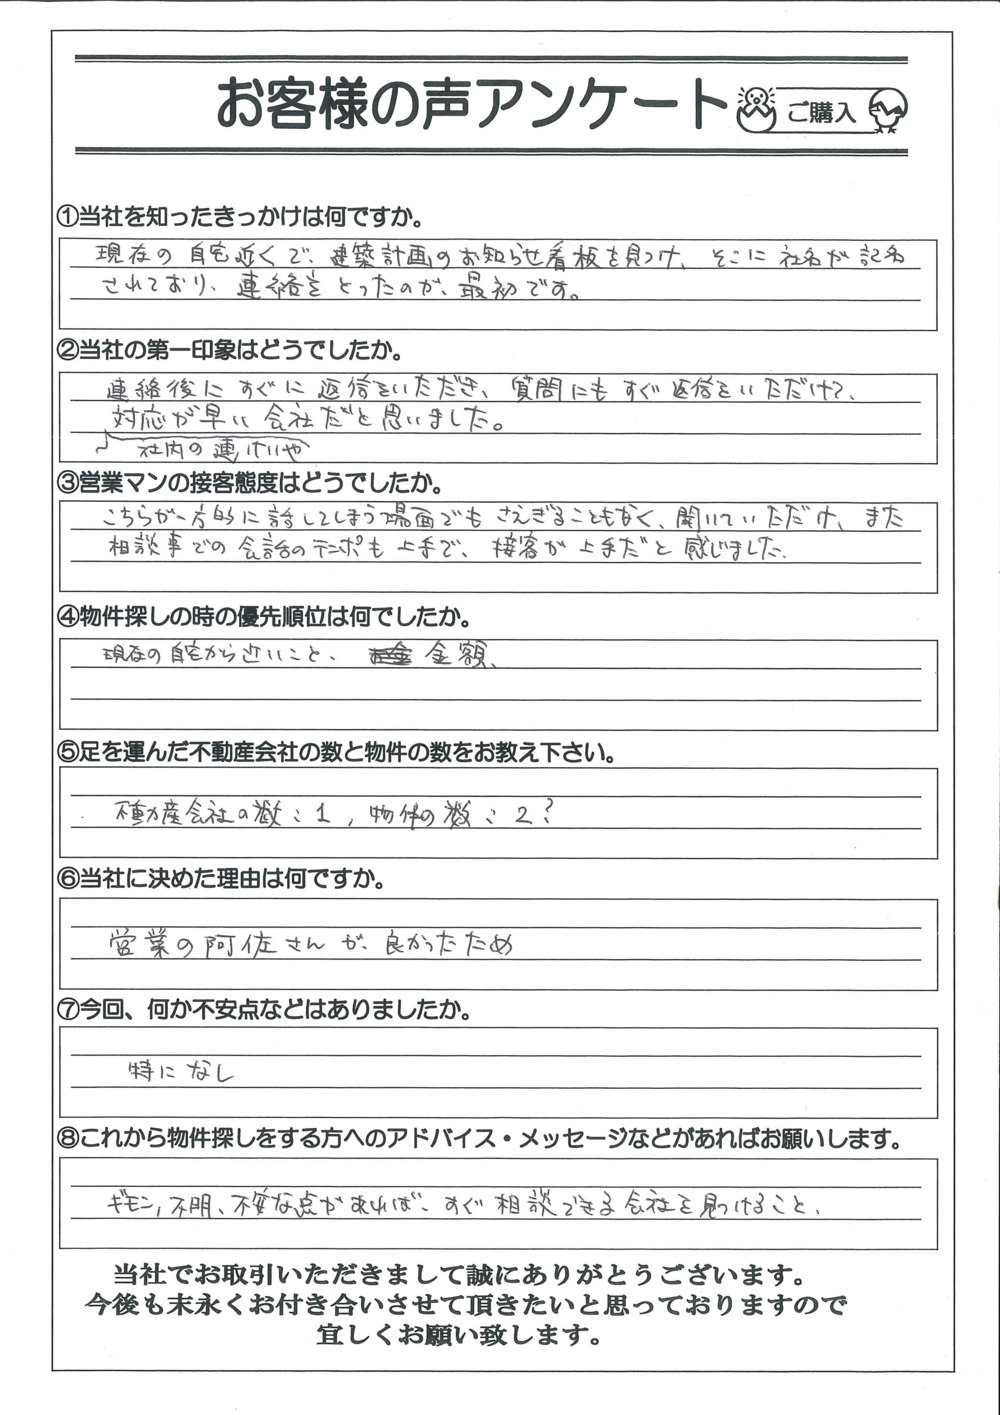 お客様の声アンケート ご購入
①当社を知ったきっかけは何ですか。
現在の自宅近くで、建築計画のお知らせ看板を見つけ、そこに社名が記名
されており、連絡をとったのが、最初です。
②当社の第一印象はどうでしたか。
連絡後にすぐに返信をいただき、質問にもすぐ返信をいただけて、
対応が早い会社だと思いました。
社内の連けいや
③営業マンの接客態度はどうでしたか。
こちらが一方的に話してしまう場面でもさえぎることもなく、聞いていただけ、また
相談事での会話のテンポも上手で、接客が上手だと感じました。
④物件探しの時の優先順位は何でしたか。
現在の自宅から近いこと、金額、
⑤足を運んだ不動産会社の数と物件の数をお教え下さい。
不動産会社の数:1,物件の数:2?
⑥当社に決めた理由は何ですか。
営業の阿佐さんが、良かったため
⑦今回、何か不安点などはありましたか。
特になし
⑧これから物件探しをする方へのアドバイス・メッセージなどがあればお願いします。
ギモン,不明、不安な点があれば、すぐ相談できる会社を見つけること、
当社でお取引いただきまして誠にありがとうございます。
今後も末永くお付き合いさせて頂きたいと思っておりますので
宜しくお願い致します。